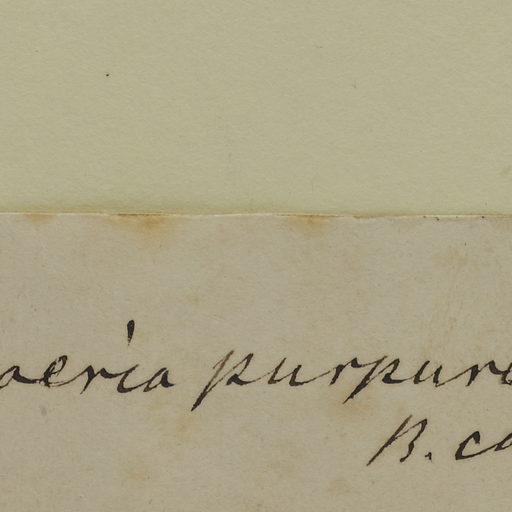 aeria purpure
B. co